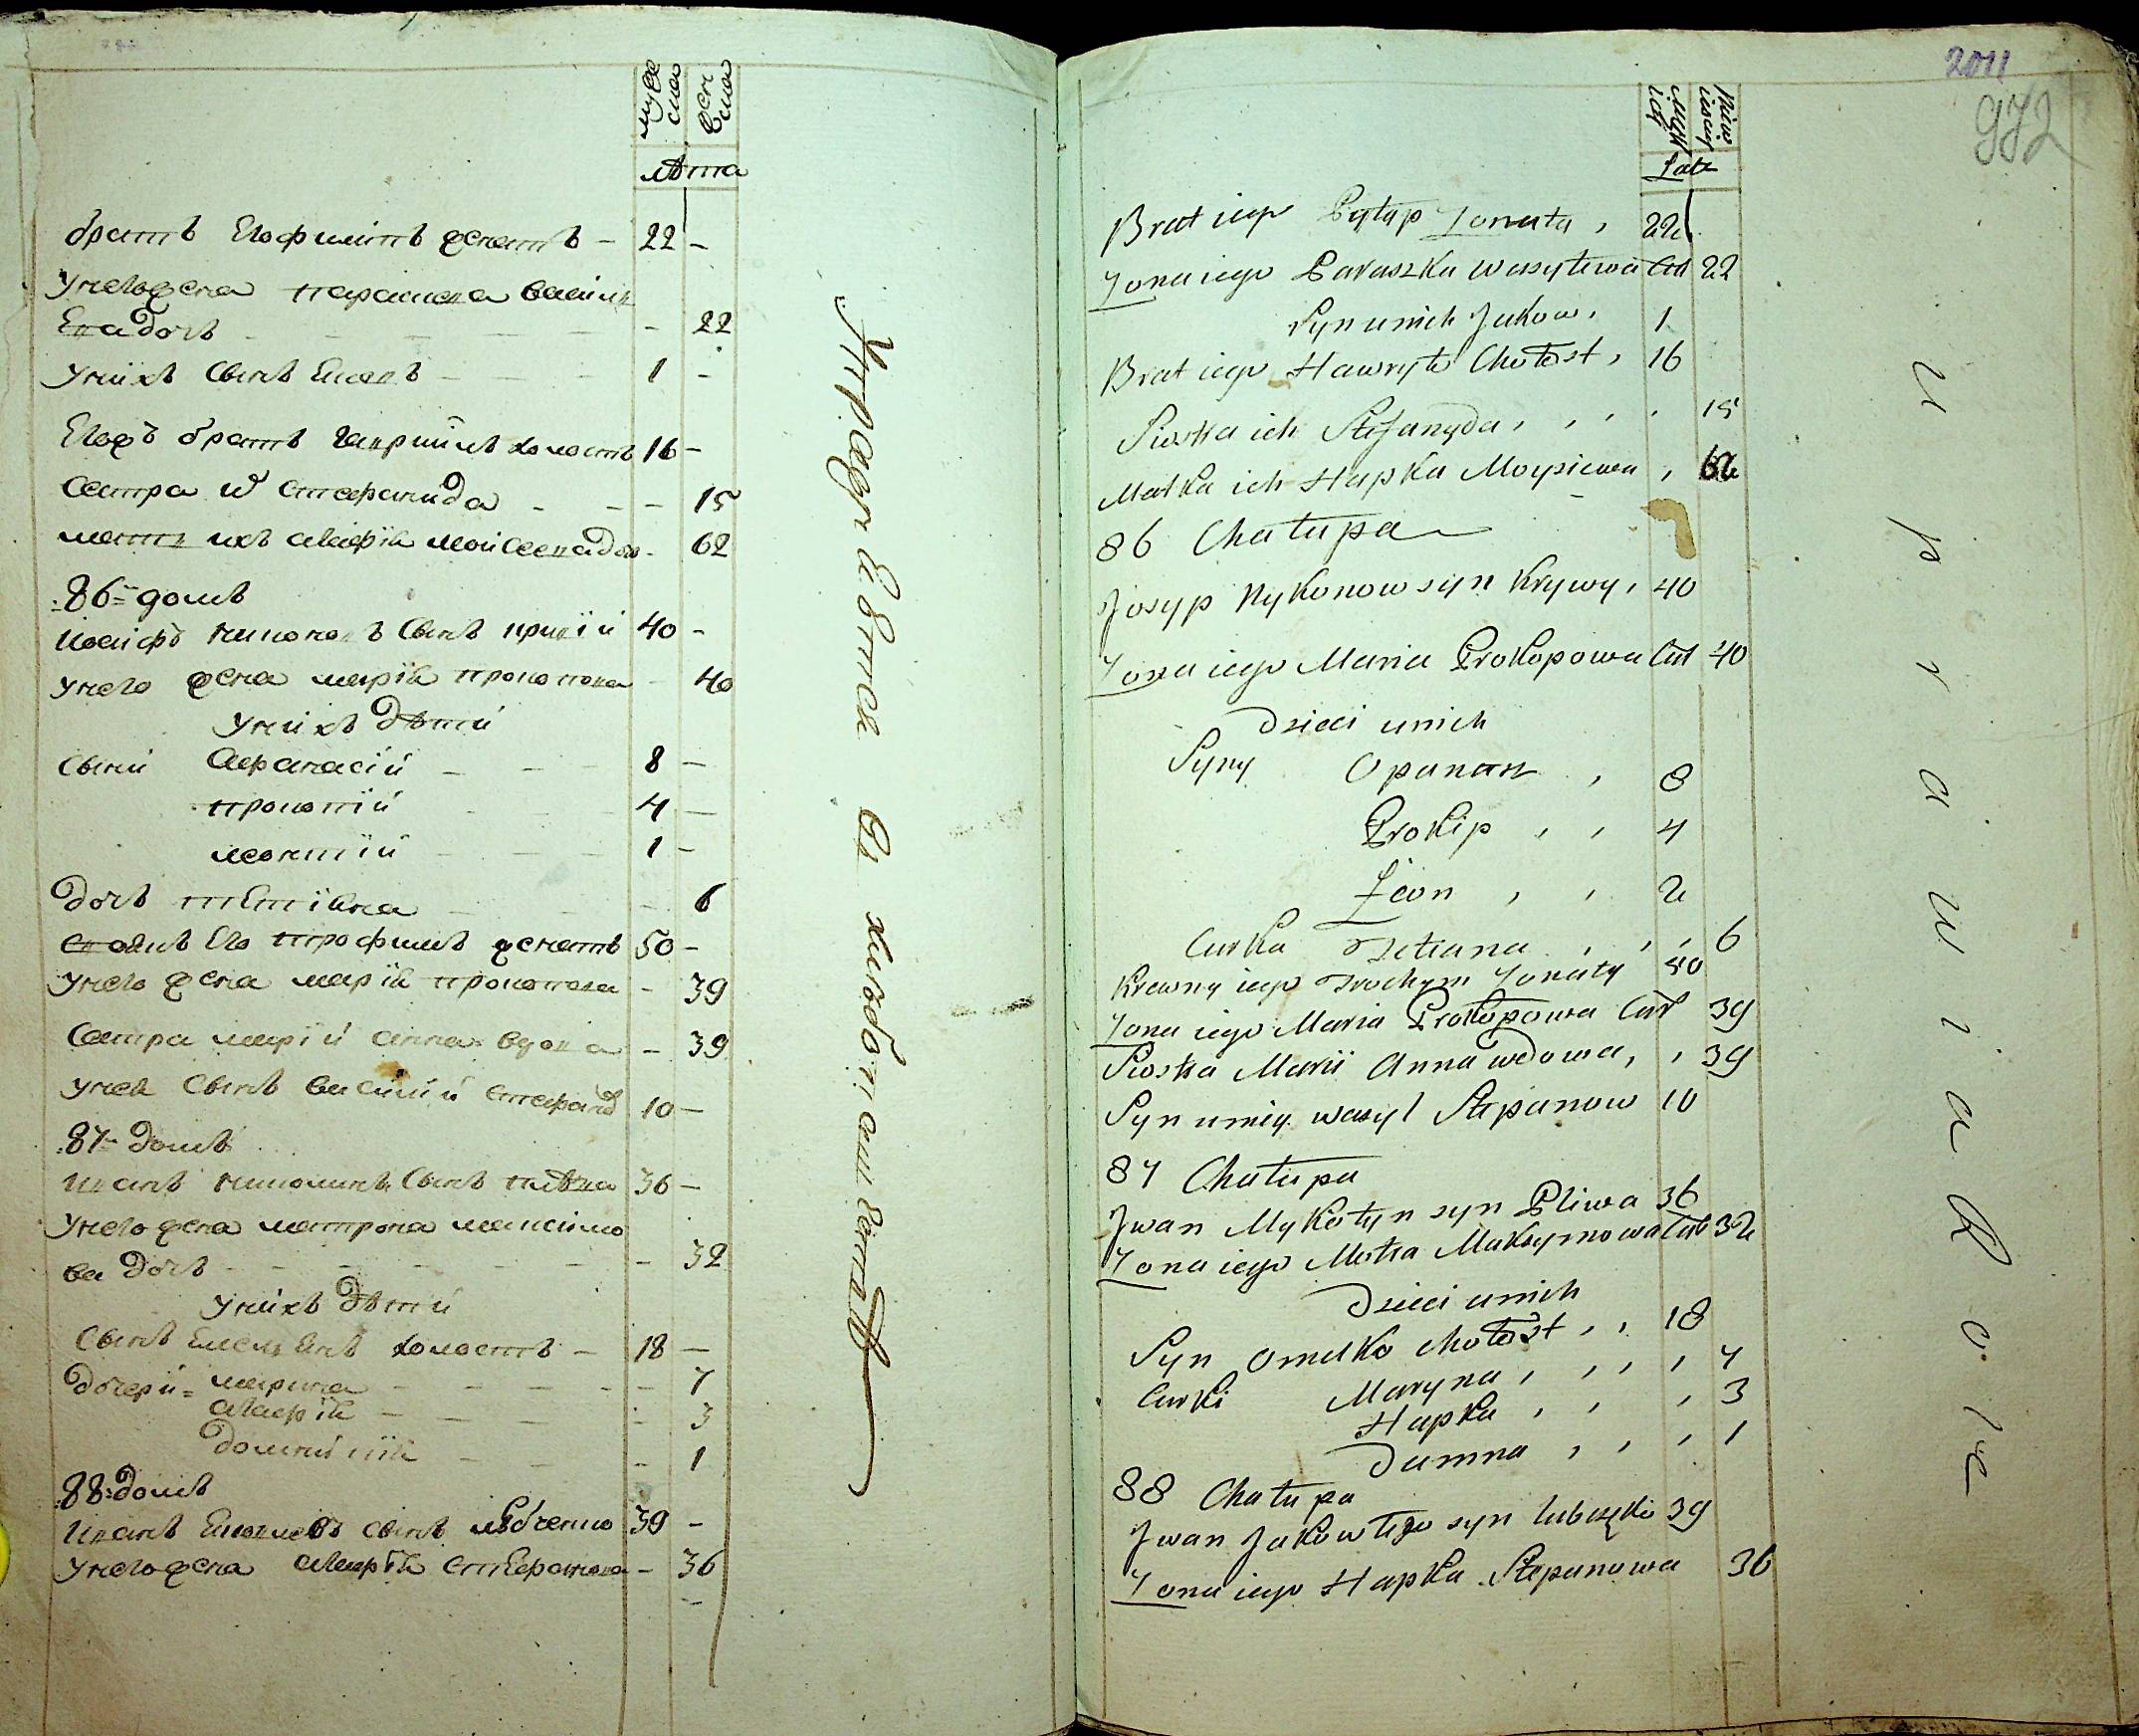 мужеска
женска
лѣта
братъ Его филипъ женатъ – 22 –
Унего жена параскева васил
Ева дочъ – 22
Унихъ Сынъ Ековъ 1 –
Егожъ братъ Гавриилъ холостъ 16 –
Сестра их Стефанида – 15
мать ихъ агафія моисеева доч 62
86 домъ
Иосифъ никоновъ Сынъ кривій 40 –
Унего жена марія прокопова – 40
Унихъ дѣти
Сыни Афанасій – 8 –
прокопій 4 –
леонтій 1 –
дочъ татіана – 6
Его трофимъ женатъ 50 –
Унего жена марія прокопова – 39
Сестра маріи анна вдова – 39
Унея Сынъ василій Стефанов 10 –
87 домъ
Иванъ николинъ Сынъ плѣва 36 –
Унего жена матрона максимо
ва дочъ – 32
Унихъ дѣти
Сынъ Емельянъ холостъ – 18 –
дочери = марина – 7
агафія – 3
домникія – 1
88 домъ
Иванъ Сынъ 39 –
Унего жена агафія – 36
2011
972
Męsk
iey
Lata
Brat iego Pylyp Żonaty, 22
Żona iego Paraszka Wasylowa Cur 22
Syn unich Jakow, 1
Brat iego Hawryło Chołost, 16
Siostra ich Stefanyda, 15
Matka ich Hapka Moysiewa, 62
86 Chałupa
Josyp Nykonow syn Krywy, 40
Żona iego Maria Prokopowa Cur 40
Dzieci unich
Syny Opanas, 8
Prokip, 4
Leon, 2
Curka Tetiana, 6
Krewny iego Trochym Żonaty 50
Żona iego Maria Prokopowa Cur 39
Siostra Marii Anna wdowa, 39
Syn uniey Wasyl Stepanow 10
87 Chałupa
Jwan Mykołyn syn Pliwa 36
Żona iego Motra Maksymowa Cur 32
Dzieci unich
Syn Omelko chołost, 18
Curki Maryna, 7
Hapka, 3
Dumna, 1
88 Chałupa
Jwan Jakowlego syn 39
Żona iego Hapka Stepanowa 36